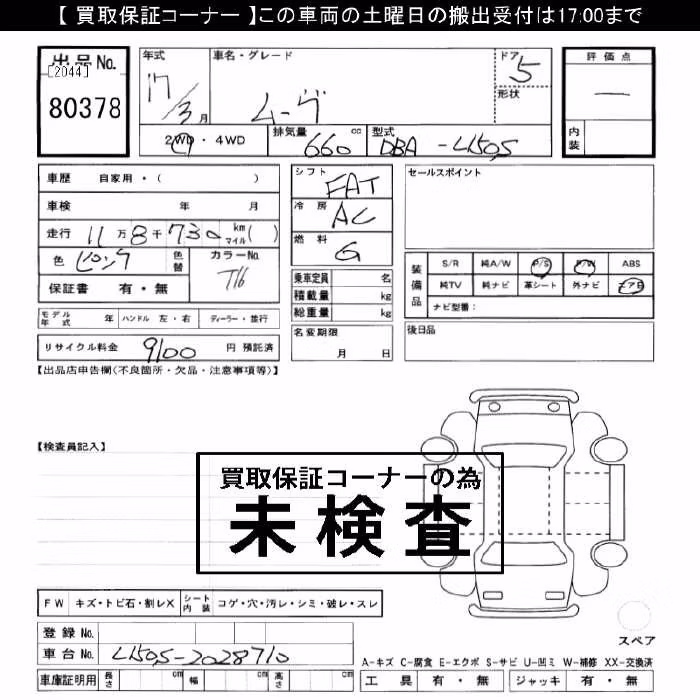 【 買取保証コーナー 】この車両の土曜日の搬出受付は17:00まで
出品 No.
[2044]
80378
年式
17/3 月
車名・グレード
ムーヴ
ドア 5
形状
2WD・4WD
排気量 660 cc
型式 DBA-L150S
評価点
―
内装
車歴 自家用・( )
車検 年 月
走行 11万8千730 km マイル ( )
色 ピンク
色替
カラーNo. T16
保証書 有・無
モデル年式 年
ハンドル 左・右
ディーラー・並行
リサイクル料金 9100 円 預託済
シフト FAT
冷房 AC
燃料 G
乗車定員 名
積載量 kg
総重量 kg
名変期限
月 日
セールスポイント
装備品
S/R 純A/W P/S P/W ABS
純TV 純ナビ 革シート 外ナビ エアB
ナビ型番:
後日品
【出品店申告欄(不良箇所・欠品・注意事項等)】
【検査員記入】
買取保証コーナーの為
未検査
FW キズ・トビ石・割レX
シート内装 コゲ・穴・汚レ・シミ・破レ・スレ
登録 No.
車台 No. L150S-2028710
車庫証明用 長さ cm 幅 cm 高さ cm
スペア
A-キズ C-腐食 E-エクボ S-サビ U-凹ミ W-補修 XX-交換済
工具 有・無 ジャッキ 有・無